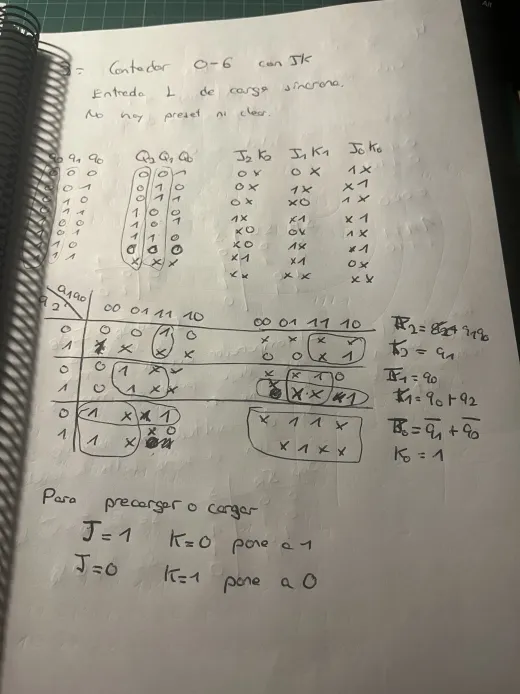 Contador 0-6 con JK
Entrada L de carga síncrona.
No hay preset ni clear.
q2 q1 q0 Q2 Q1 Q0 J2 K2 J1 K1 J0 K0
0 0 0 0 0 1 0 x 0 x 1 x
0 0 1 0 1 0 0 x 1 x x 1
0 1 0 0 1 1 0 x x 0 1 x
0 1 1 1 0 0 1 x x 1 x 1
1 0 0 1 0 1 x 0 0 x 1 x
1 0 1 1 1 0 x 0 1 x x 1
1 1 0 0 0 0 x 1 x 1 0 x
1 1 1 x x x x x x x x x
q1q0
q2 00 01 11 10 00 01 11 10
0 0 0 1 0 x x x x
1 x x x x 0 0 x 1
0 0 1 x x x x 1 0
1 0 1 x x x x x 1
0 1 x x 1 x 1 1 x
1 1 x x 0 x 1 x x
q1q0
K2 = q1
= q0
K1 = q0 + q2
= q1 + q0
K0 = 1
Para precargar o cargar
J=1 K=0 pone a 1
J=0 K=1 pone a 0